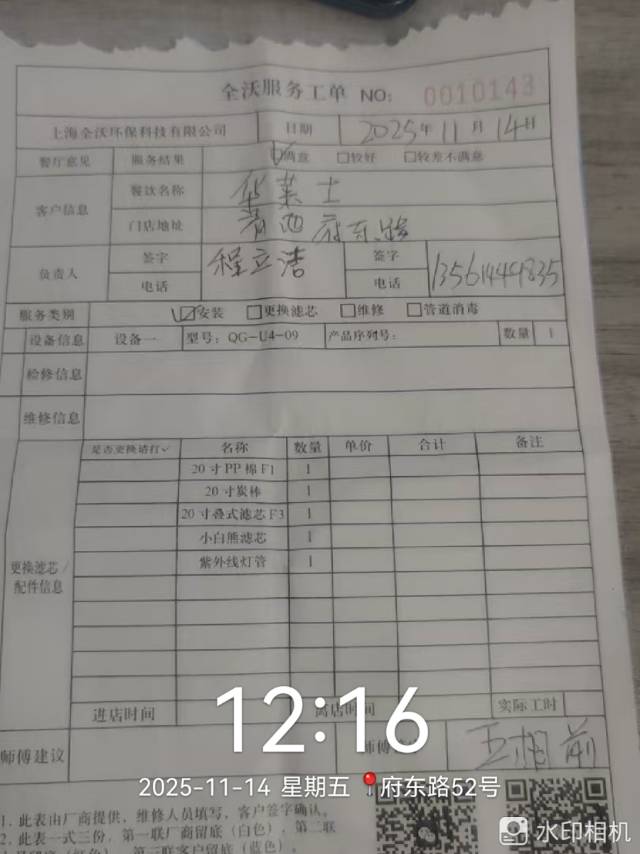 全沃服务工单 NO: 0010143
上海全沃环保科技有限公司 日期 2025年11月14日
餐厅意见 服务结果 满意 较好 较差不满意
客户信息 餐饮名称 华莱士
门店地址 府东路
负责人 签字 程立洁 签字
电话 电话 13561449835
服务类别 安装 更换滤芯 维修 管道消毒
设备信息 设备一 型号: QG-U4-09 产品序列号: 数量 1
检修信息
维修信息
是否更换请打✓ 名称 数量 单价 合计 备注
20寸PP棉F1 1
20寸炭棒 1
20寸叠式滤芯F3 1
小白熊滤芯 1
紫外线灯管 1
更换滤芯/
配件信息
进店时间 离店时间 实际工时
12:16
师傅建议 师傅 王相前
2025-11-14 星期五 府东路52号
1. 此表由厂商提供，维修人员填写，客户签字确认。
2. 此表一式三份，第一联厂商留底（白色），第二联
第三联客户留底（蓝色）。
水印相机